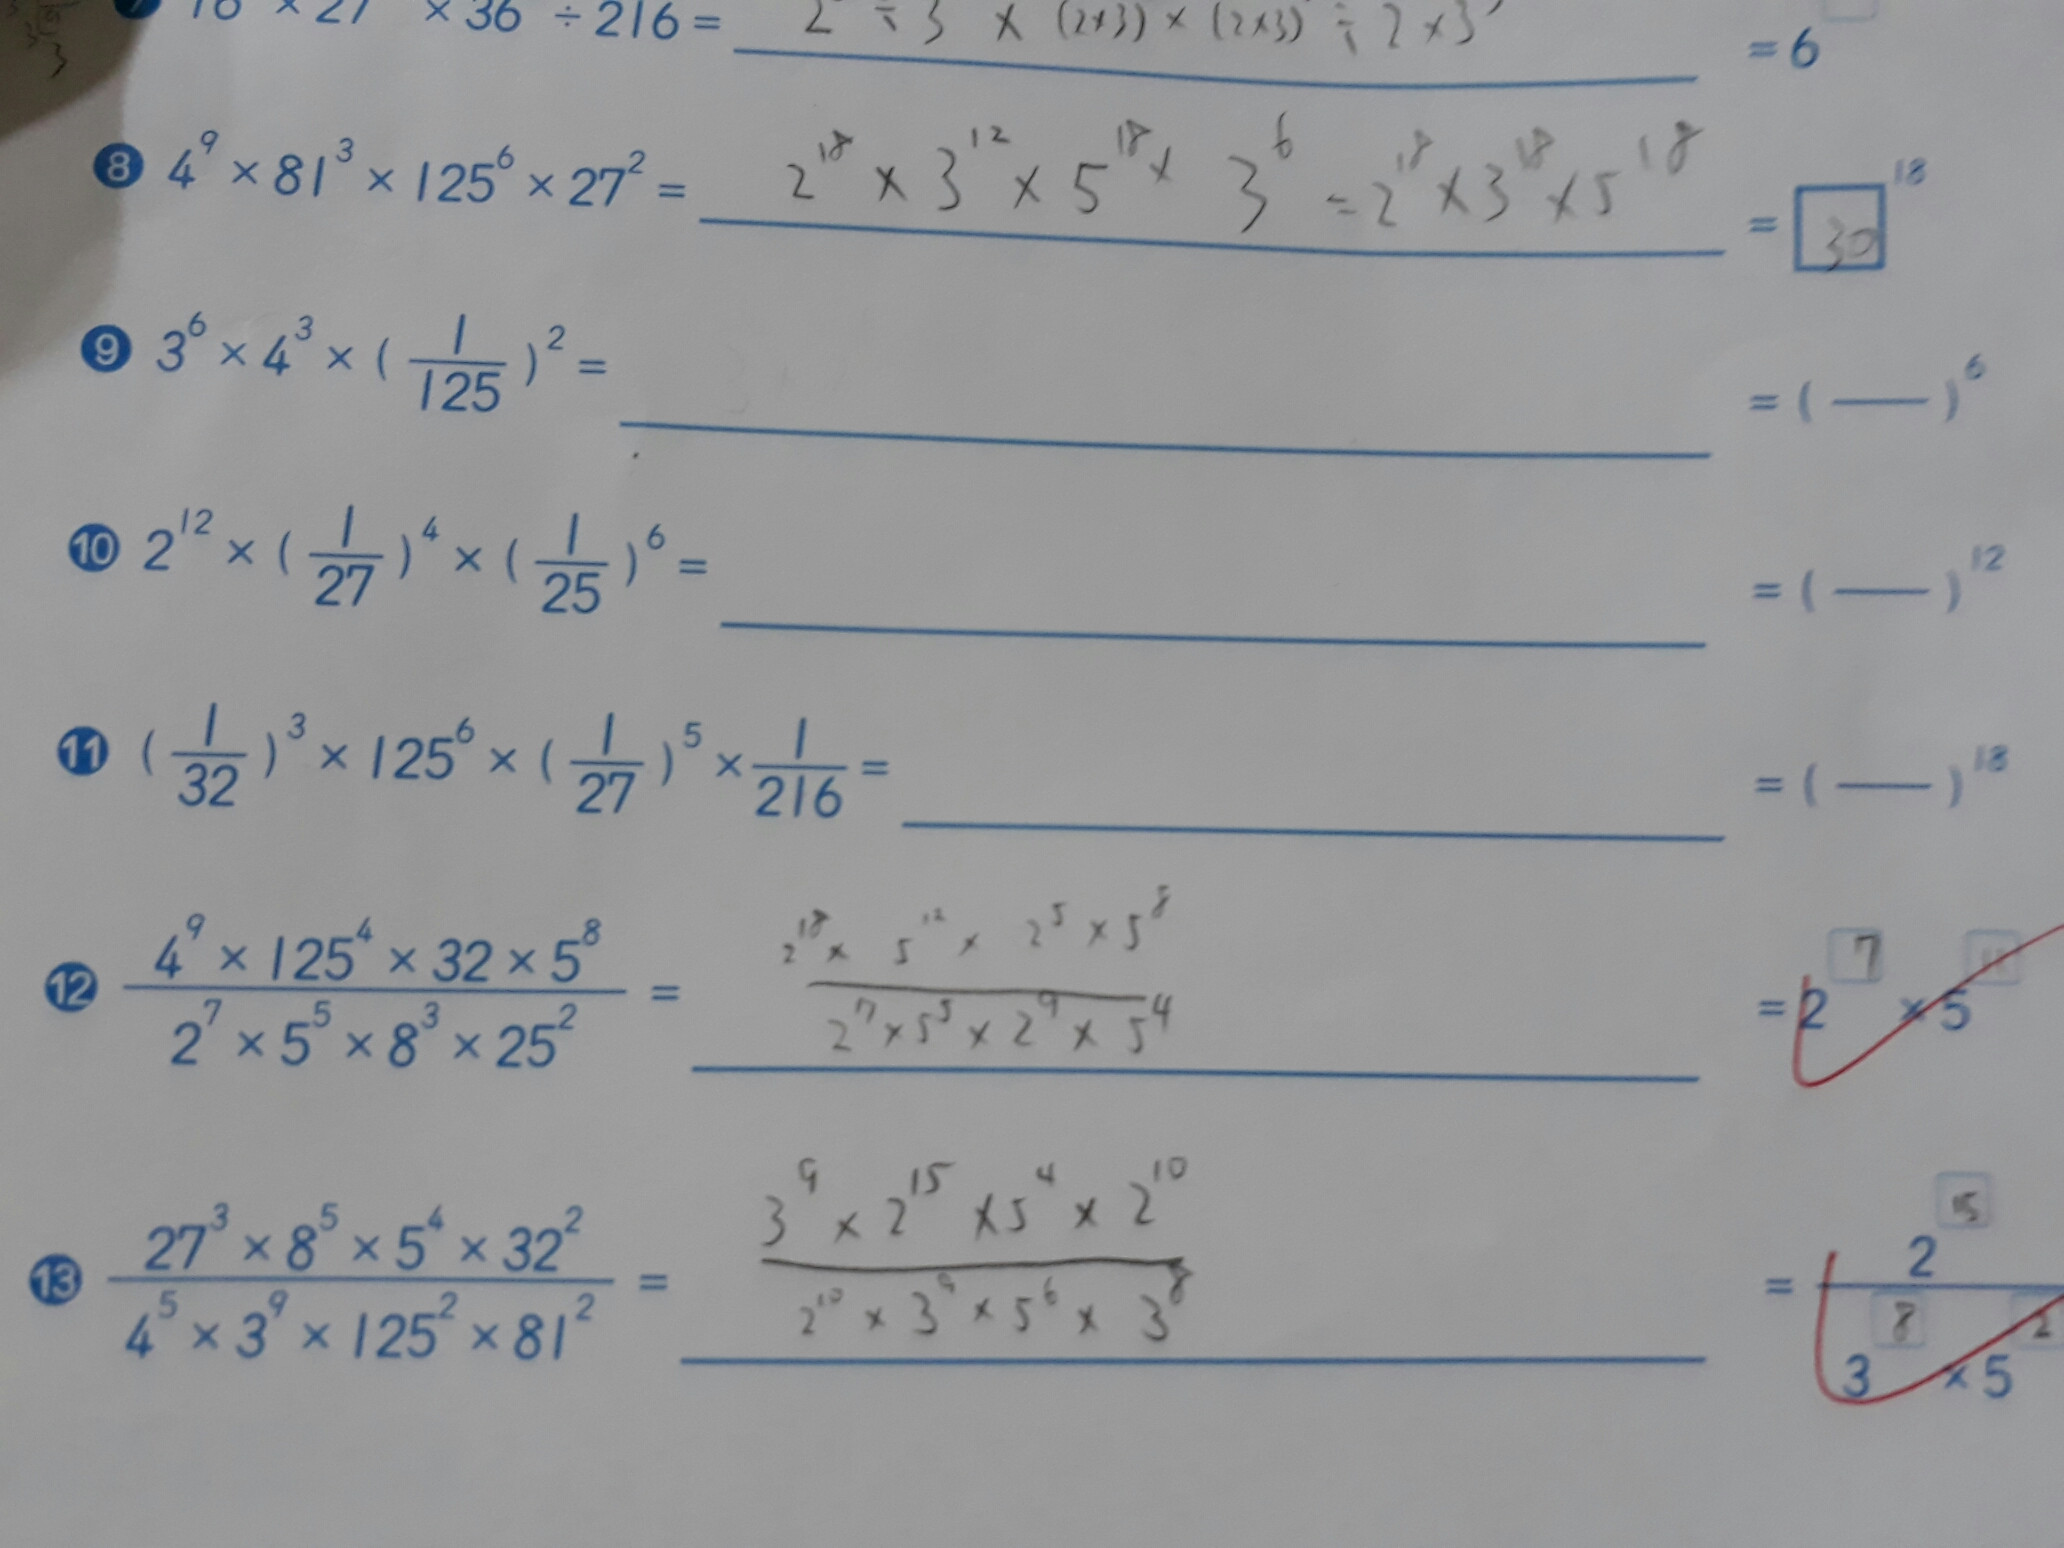 × 27 × 36 ÷ 216 = 2 ÷ 3 × (2×3) × (2×3) ÷ 2 × 3 = 6
8 4^9 × 81^3 × 125^6 × 27^2 = 2^18 × 3^12 × 5^18 × 3^6 = 2^18 × 3^18 × 5^18 = 30^18
9 3^6 × 4^3 × (1/125)^2 = = ( — )^6
10 2^12 × (1/27)^4 × (1/25)^6 = = ( — )^12
11 (1/32)^3 × 125^6 × (1/27)^5 × 1/216 = = ( — )^18
12 (4^9 × 125^4 × 32 × 5^8)/(2^7 × 5^5 × 8^3 × 25^2) = (2^18 × 5^12 × 2^5 × 5^8)/(2^7 × 5^5 × 2^9 × 5^4) = 2^7 × 5^11
13 (27^3 × 8^5 × 5^4 × 32^2)/(4^5 × 3^9 × 125^2 × 81^2) = (3^9 × 2^15 × 5^4 × 2^10)/(2^10 × 3^9 × 5^6 × 3^8) = 2^15/(3^8 × 5^2)